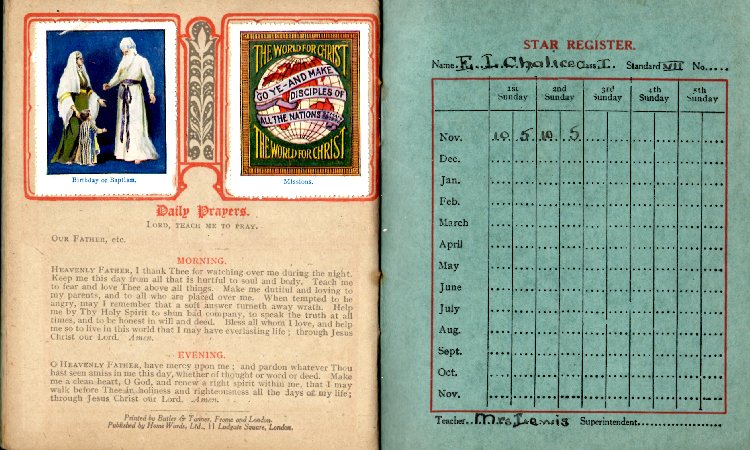 THE WORLD FOR CHRIST
GO YE-AND MAKE
DISCIPLES OF
ALL THE NATIONS
THE WORLD FOR CHRIST
Birthday or Baptism.
Missions.
Daily Prayers.
LORD, TEACH ME TO PRAY.
OUR FATHER, etc.
MORNING.
HEAVENLY FATHER, I thank Thee for watching over me during the night.
Keep me this day from all that is hurtful to soul and body. Teach me
to fear and love Thee above all things. Make me dutiful and loving to
my parents, and to all who are placed over me. When tempted to be
angry, may I remember that a soft answer turneth away wrath. Help
me by Thy Holy Spirit to shun bad company, to speak the truth at all
times, and to be honest in will and deed. Bless all whom I love, and help
me so to live in this world that I may have everlasting life; through Jesus
Christ our Lord. Amen.
EVENING.
O HEAVENLY FATHER, have mercy upon me; and pardon whatever Thou
hast seen amiss in me this day, whether of thought or word or deed. Make
me a clean heart, O God, and renew a right spirit within me, that I may
walk before Thee in holiness and righteousness all the days of my life;
through Jesus Christ our Lord. Amen.
Printed by Butler & Tanner, Frome and London.
Published by Home Words, Ltd., 11 Ludgate Square, London.
STAR REGISTER.
Name E. L. Chalice Class I. Standard VII No.
1st Sunday 2nd Sunday 3rd Sunday 4th Sunday 5th Sunday
Nov. 10 5 10 5
Dec.
Jan.
Feb.
March
April
May
June
July
Aug.
Sept.
Oct.
Nov.
Teacher Mrs Lewis Superintendent